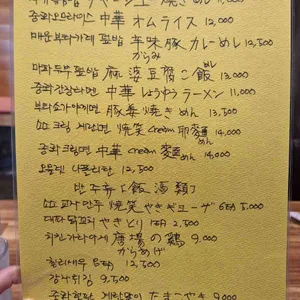 중화오므라이스 中華 オムライス 12,000
매운부타카레 덮밥 辛味豚カレーめし 12,500
からみ
마파두부덮밥 麻婆豆腐ご飯 13,000
めし
중화간장라면 中華しょうゆラーメン 11,000
부타쇼가야끼멘 豚 焼きめん 13,500
크림 계란면 焼 cream 麺 14,000
めん
중화크림면 中華 cream 麺 14,000
めん
오므렛 나폴리탄 12,500
반주류「飯酒類」
교자 만두 焼 やきギョーザ 6EA 5,000
대파 닭꼬치 やきとり 1EA 2,500
치킨가라아게 唐揚の鶏 9,000
からあげ
칠리새우 5EA 12,500
감자튀김 9,500
たまごやき 9,000